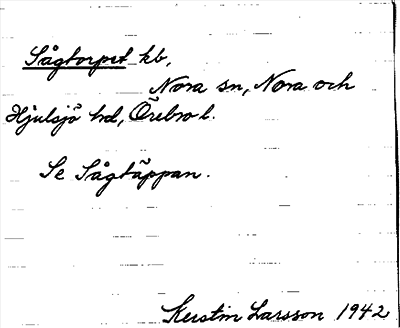 Sågtorpet kb,
Nora sn, Nora och
Hjulsjö hd, Örebro l.
Se Sågtäppan.
Kerstin Larsson 1942